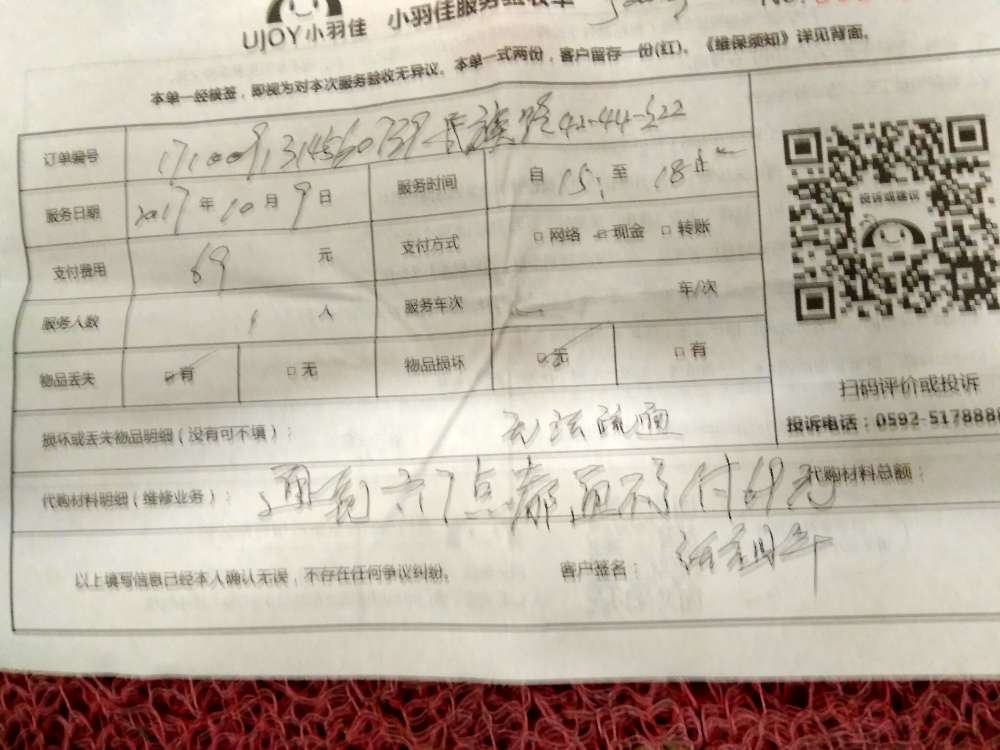 UJOY小羽佳 小羽佳服务验收单 No:
本单一经核签，即视为对本次服务验收无异议。本单一式两份，客户留存一份(红)。《维保须知》详见背面。
订单编号 42-44-522
服务日期 2017年10月9日 服务时间 自15:至18止
支付费用 69元 支付方式 □网络 □现金 □转账
服务人数 1人 服务车次 车/次
物品丢失 □有 □无 物品损坏 □无 □有
损坏或丢失物品明细（没有可不填）： 无法疏通
代购材料明细（维修业务）： 付69元 代购材料总额：
以上填写信息已经本人确认无误，不存在任何争议纠纷。 客户签名：
投诉或建议
扫码评价或投诉
投诉电话：0592-517888